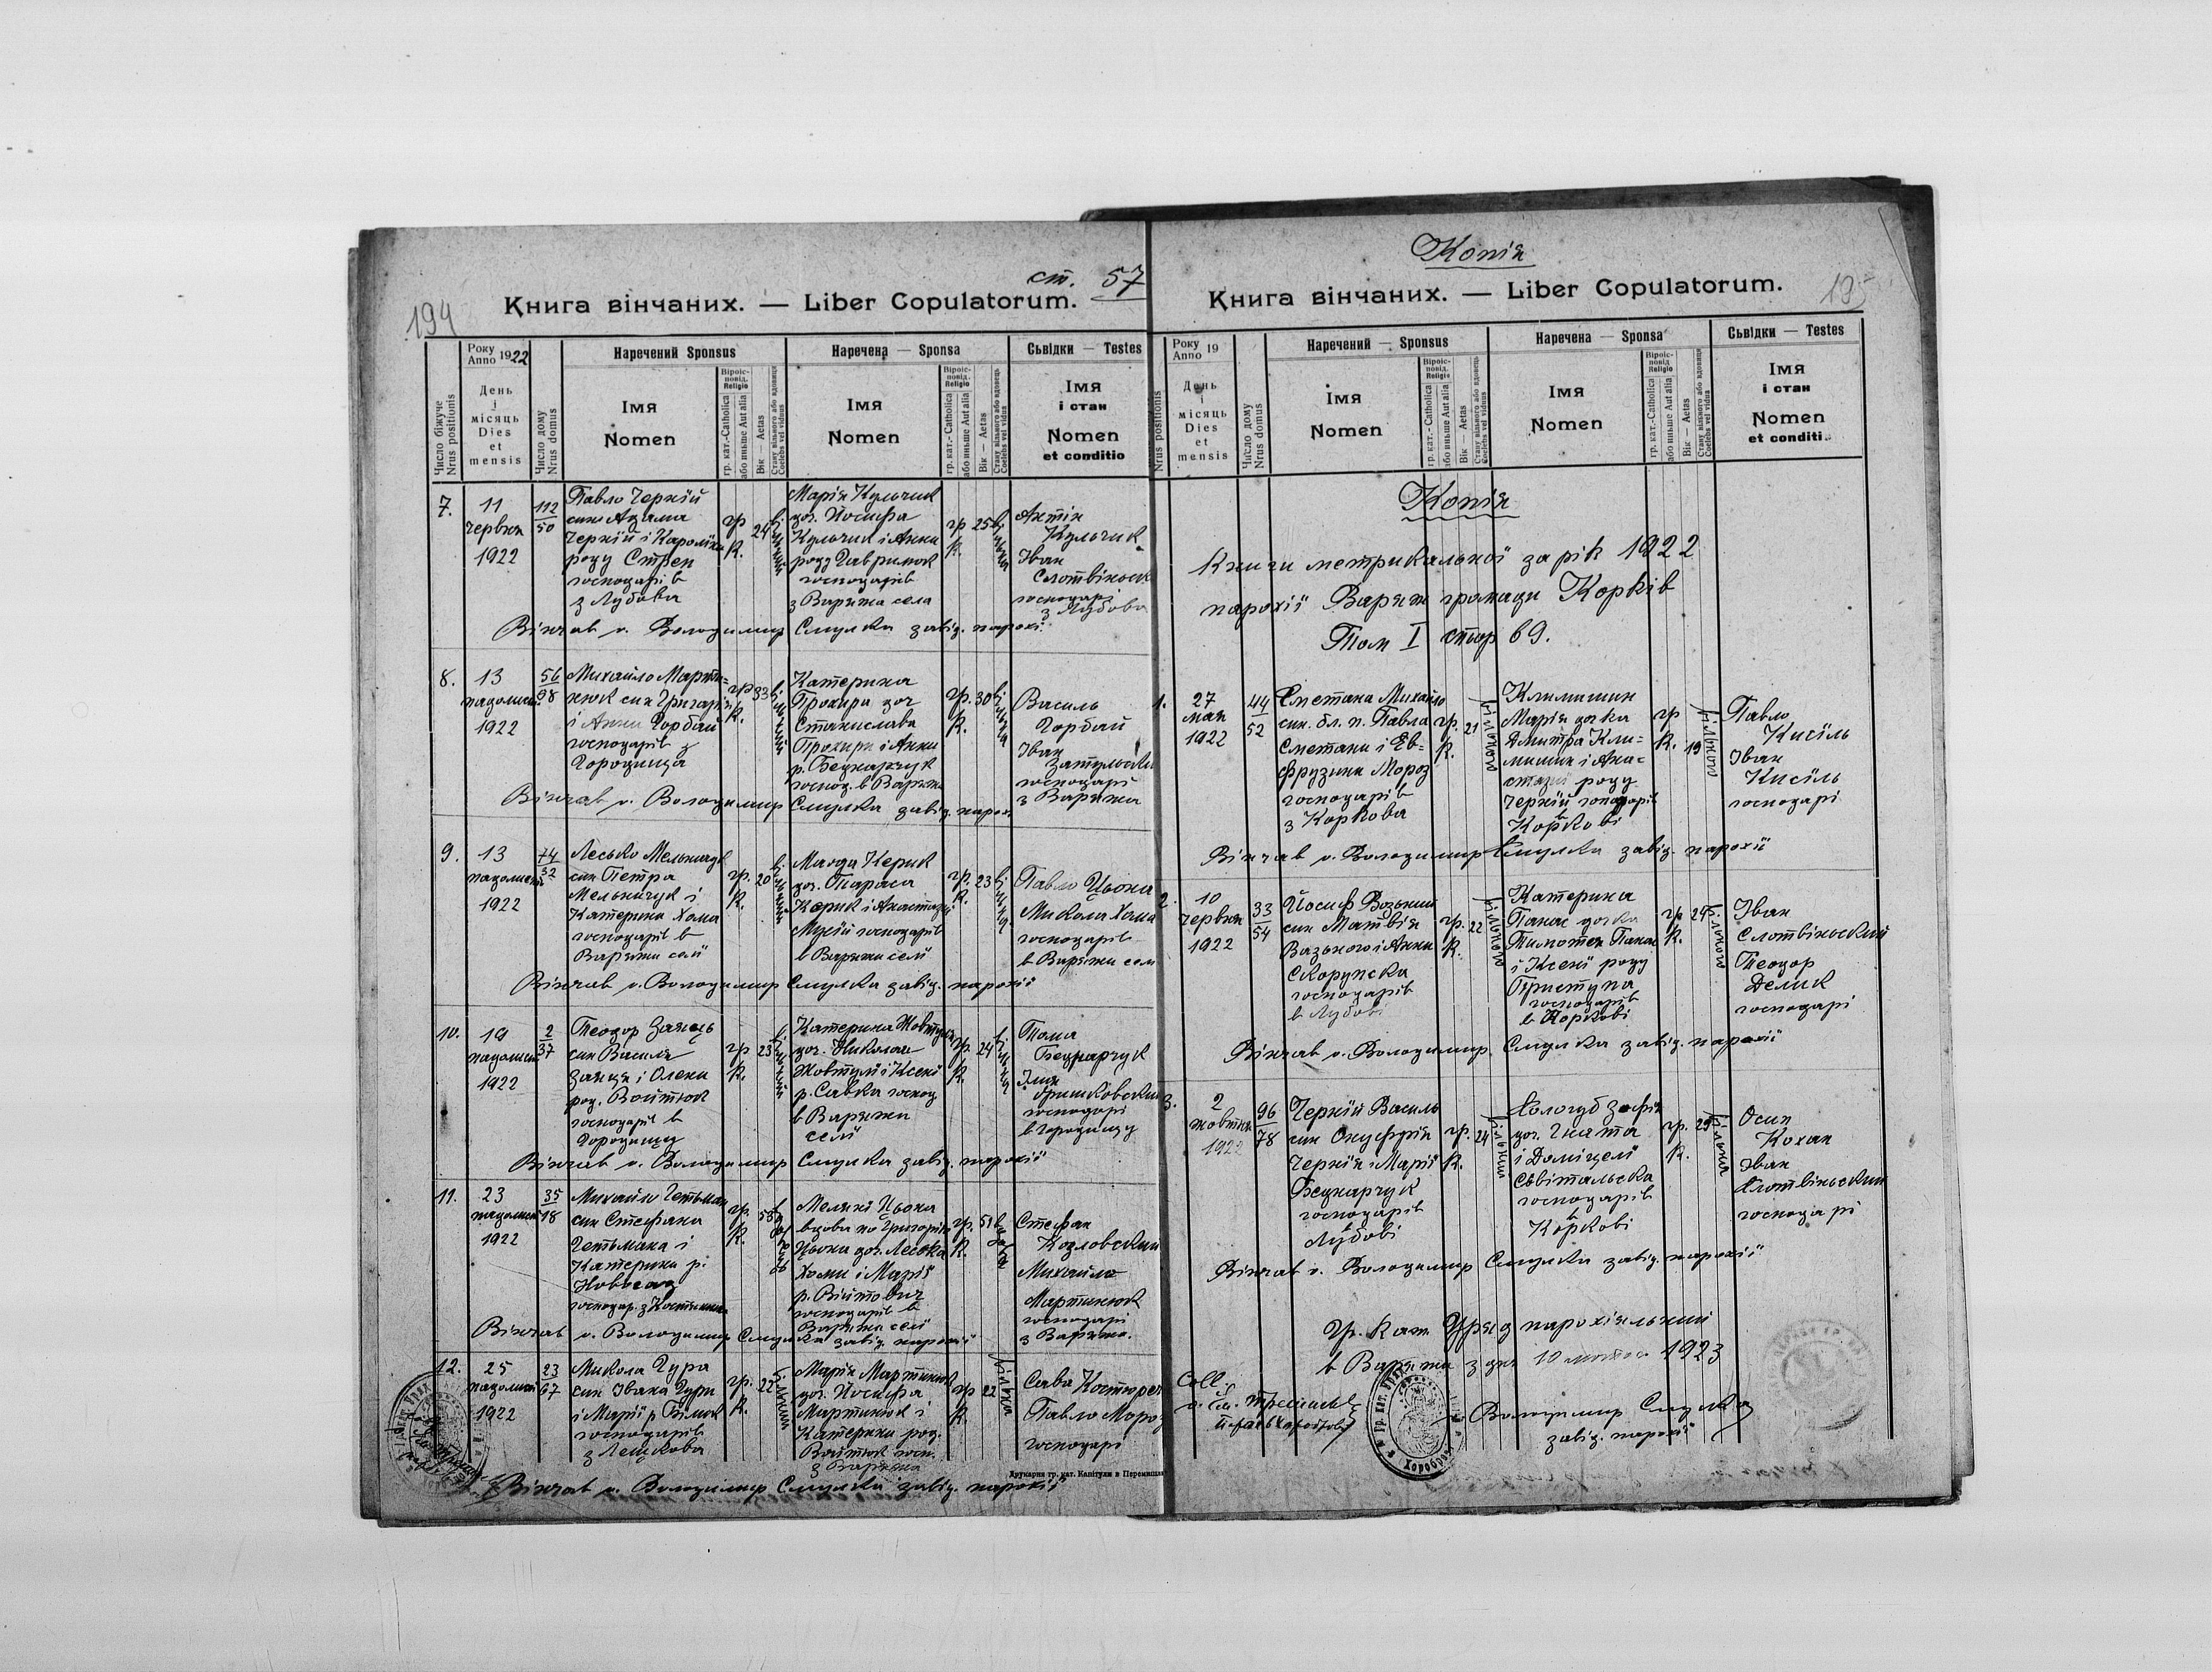 194
ст. 57
Книга вінчаних. — Liber Copulatorum.
Число біжуче
Nrus positionis
Року
Anno 1922
День
і
місяць
Dies
et
mensis
Число дому
Nrus domus
Наречений Sponsus
Імя
Nomen
Віроіс-
повід.
Religio
гр. кат.-Catholica
або иньше Aut alia
Вік — Aetas
Стану вільного або вдовець
Coelebs vel viduus
Наречена — Sponsa
Імя
Nomen
Віроіс-
повід.
Religio
гр. кат.-Catholica
або иньше Aut alia
Вік — Aetas
Coelebs vel vidua
Сьвідки — Testes
Імя
і стан
Nomen
et conditio
7.
11
червня
1922
112
50
Павло Черній
син Адама
Черній і Кароліни
роду Стрен
господарів
з Лубова
гр
к.
24
Марія Кульчик
доч. Йосифа
Кульчик і Анни
роду Гавринюк
господарів
з Варяжа села
гр
к.
25
Антін
Кульчик
Іван
Слотвіньск
господарі
з Лубова
Вінчав о. Володимир Смулка завід. парохі.
8.
13
падолиста
1922
56
98
Михайло Марти=
нюк син Григорія
і Анни Горбай
господарів з
Городища
гр
к.
33
Катерина
Прохира доч
Станислава
Прохири і Анни
р. Беднарчук
господ. в Варяжи
гр.
к.
30
Василь
Горбай
Іван
господарі
з Варяжа
Вінчав о. Володимир Смулка завід. парохі
9.
13
падолиста
1922
74
32
Лесько Мельничук
син Петра
Мельничук і
Катерини Хома
господарів в
Варяжи селі
гр.
к.
20
Магда Керик
доч. Тараса
Керик і Анастазиї
господарів
в Варяжи селі
гр.
к.
23
Павло Цьона
Микола Хома
господарів
в Варяжи сели
Вінчав о. Володимир Смулка завід. парохії
10.
19
падолиста
1922
2
37
Теодор Заяць
син Василя
Заяця і Олени
род. Войтюк
господарів в
Городищу
гр
к.
23
Катерина Жовтуля
доч. Николая
Жовтулі і Ксені
р. Савка господ
в Варяжи
селі
гр.
к.
24
Тома
Беднарчук
Ілия
господарі
в Городищу
Вінчав о. Володимир Смулка завід. парохії
11.
23
падолиста
1922
35
18
Михайло Гетьман
син Стефана
Гетьмана і
Катерини р.
Новосад
гр.
к.
58
Мелянія Цьона
вдова по Григорію
Цьона доч. Леська
Хоми і Марії
р. Війтович
господарів в
Варяжи селі
гр.
к.
51
вдова
Стефан
Козловский
Михайло
Мартинюк
господарі
з Варяжа.
Вінчав о. Володимир Смулка завід. парохії
12.
25
падолиста
1922
23
67
Микола Гура
син Івана Гури
і Марії р. Білик
господарів
з Лешкова
гр.
к.
22
Марія Мартинюк
доч. Йосифа
Мартинюк і
Катерини род.
Войтюк госп.
з Варяжа
гр
к.
22
вільна
Сава Костюрен
Павло Мороз
господарі
Вінчав о. Володимир Смулка завід. парохії
Друкарня гр. кат. Капітули в Перемишли
Копія
Книга вінчаних. — Liber Copulatorum.
Nrus positionis
Року
Anno 19
День
і
місяць
Dies
et
mensis
Число дому
Nrus domus
Наречений — Sponsus
Імя
Nomen
Віроіс-
повід.
Religio
гр. кат.-Catholica
або иньше Aut alia
Вік — Aetas
Стану вільного або вдовець
Coelebs vel viduus
Наречена — Sponsa
Імя
Nomen
Віроіс-
повід.
Religio
гр. кат.-Catholica
або иньше Aut alia
Вік — Aetas
Coelebs vel vidua
Сьвідки — Testes
Імя
і стан
Nomen
et conditi
Копія
Книги метрикальної за рік 1922
парохії Варяж громади Корків
Том I стор 69.
1.
27
мая
1922
44
52
Сметана Михайло
син. бл. п. Павла
Сметани і Ев=
фрузини Мороз
господарів
з Коркова
гр.
к.
21
вільного
Климишин
Марія дочка
Дмитра Кли-
мишин і Ана-
стазиї роду
Черній господарів
в Коркові
гр
к.
19
вільного
Павло
Кисіль
Іван
Кисіль
господарі
Вінчав о. Володимир Смулка завід. парохії
2.
10
червня
1922
33
54
Йосиф Возьний
син Матвія
Возьного і Анни
Скорупска
господарів
в Лубові
гр.
к.
22
вільного
Катерина
Панас дочка
Тимотея Панас
і Ксені роду
Приступа
господарів
в Коркові
гр
к.
24
вільного
Іван
Слотвіньский
Теодор
Делик
господарі
Вінчав о. Володимир Смулка завід. парохії
3.
2
жовтня
1922
96
78
Черній Василь
син Онуфрія
Чернія і Марії
Беднарчук
господарів
в
Лубові
гр.
к.
24
вільний
Гологуб Зофія
доч. Гната
і Доміцелі
Сьвітальска
господарів
в
Коркові
гр.
к.
29
вільна
Осип
Кохан
Іван
Слотвіньский
господарі
Вінчав о. Володимир Смулка завід. парохії
Гр. кат. Уряд парохіяльний
в Варяжи з дня 10 лютого 1923
Coll.
Володимир Смулка
завід. парохії